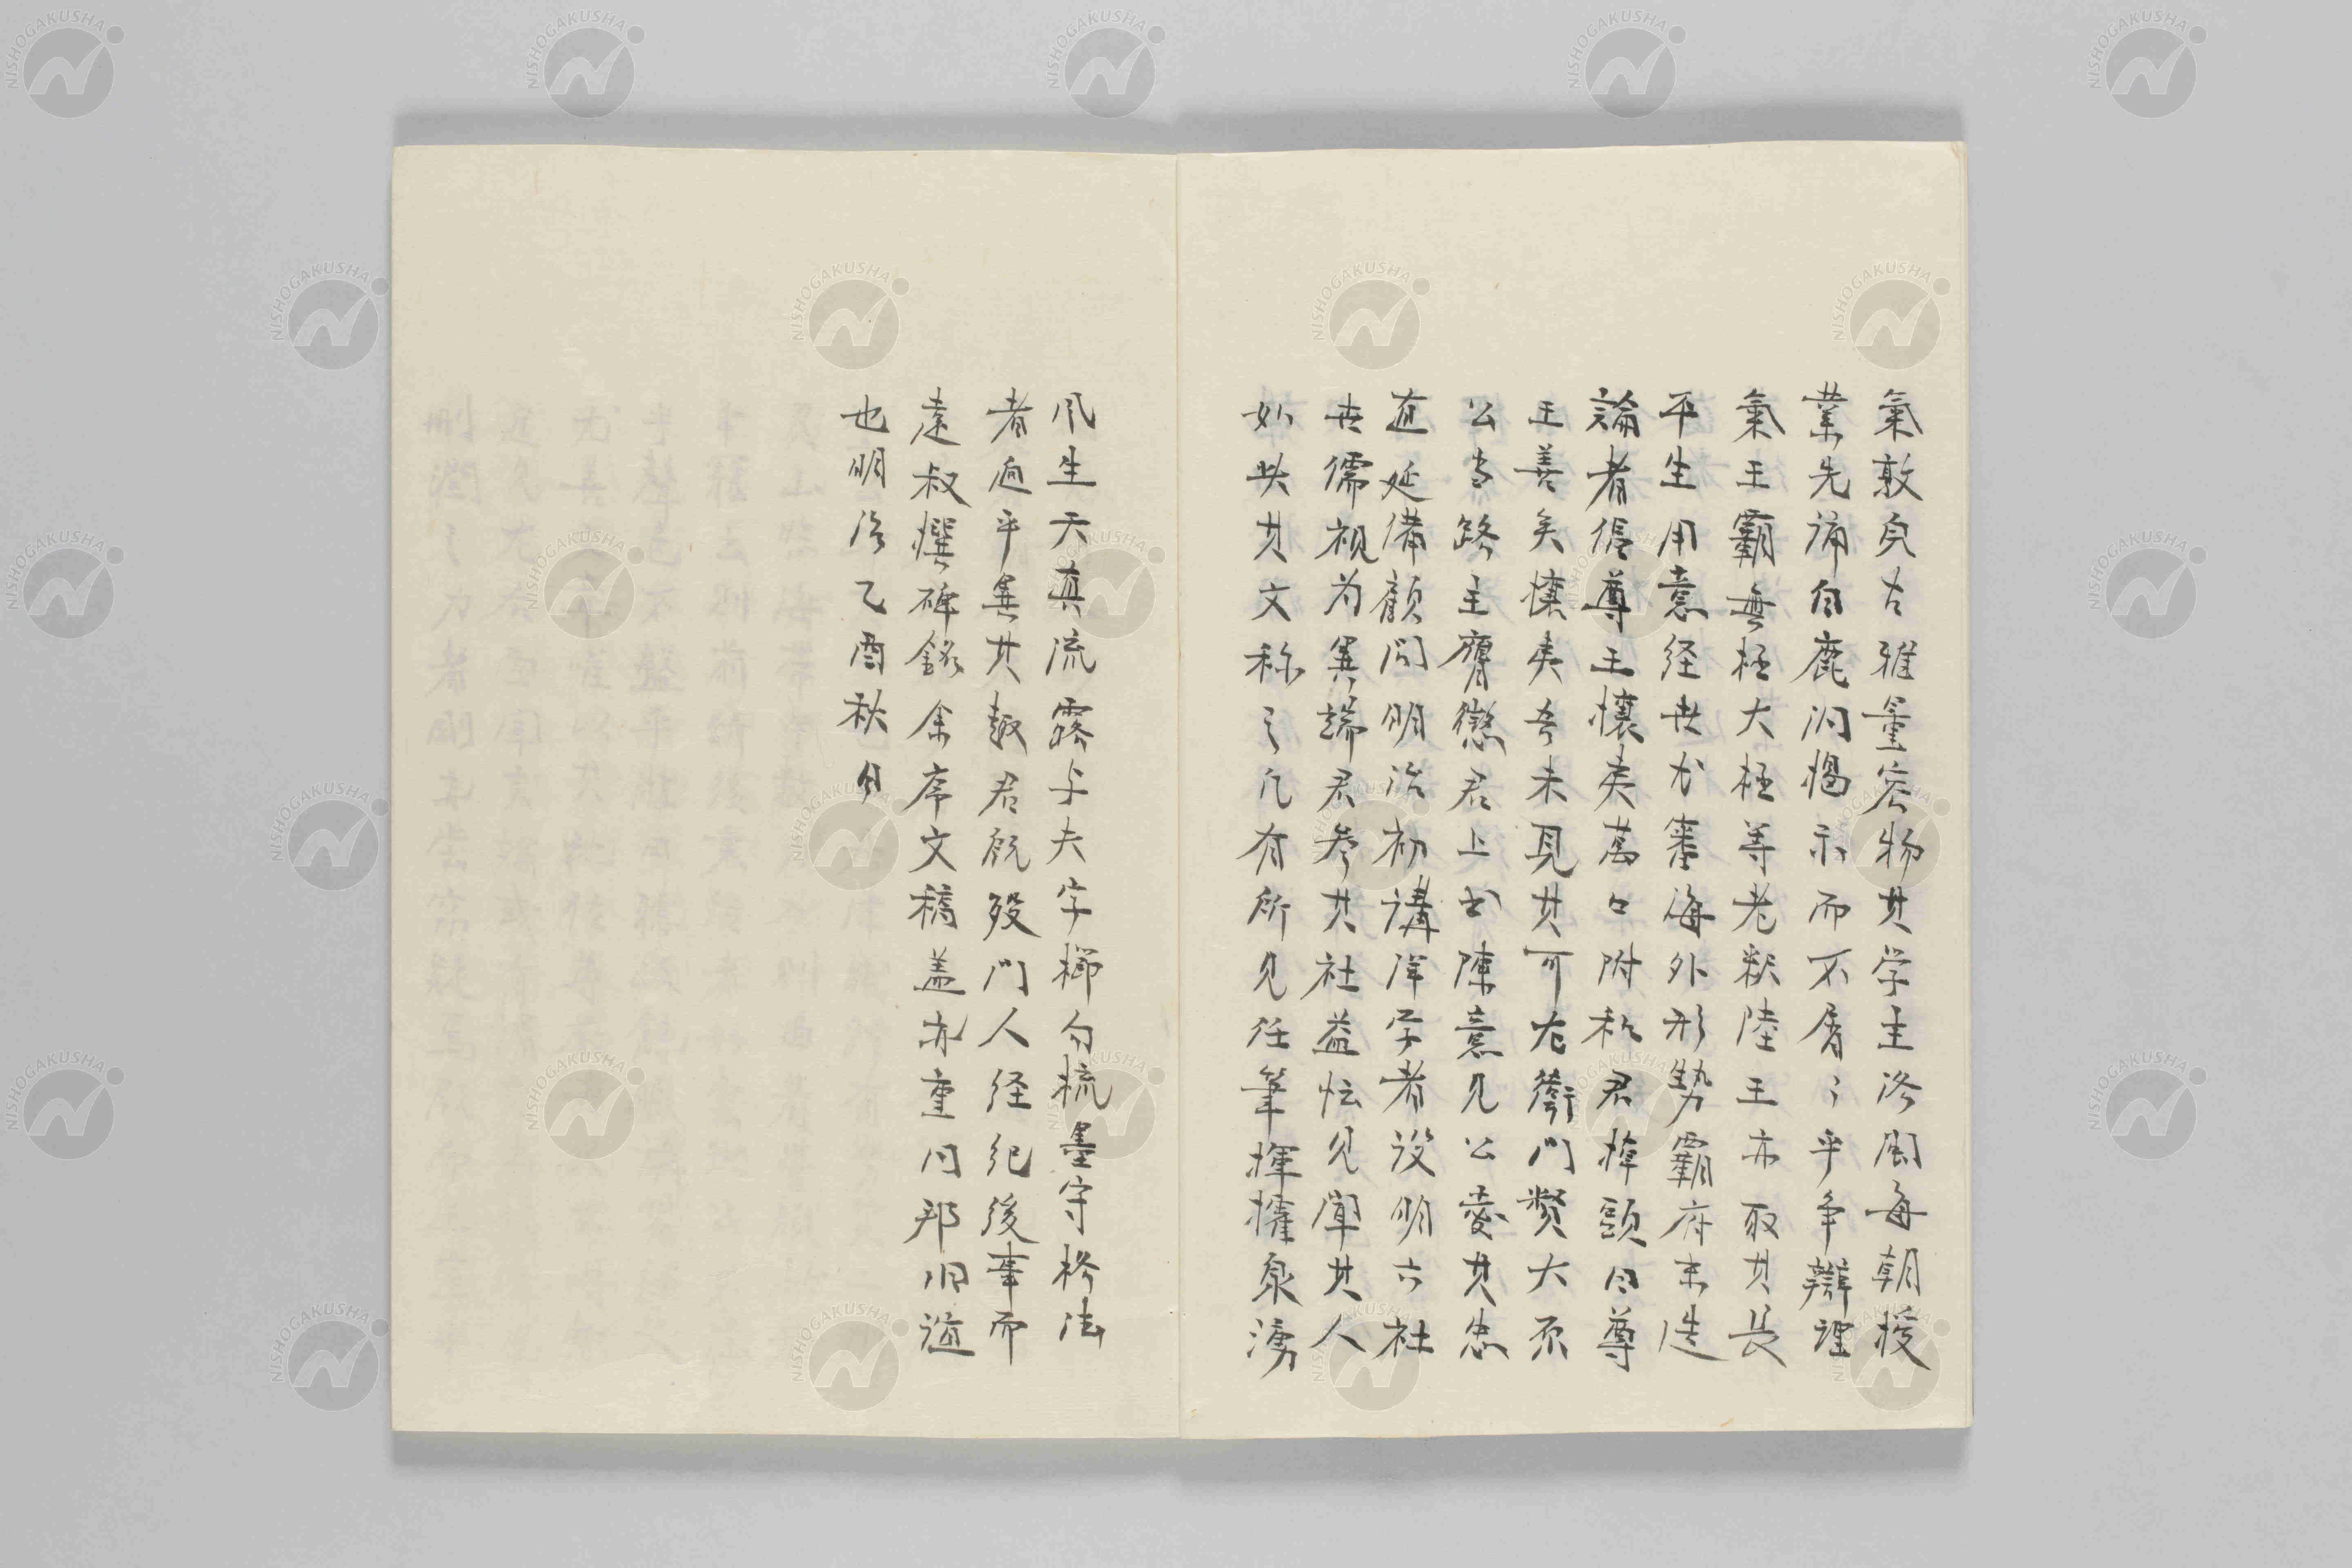 氣敦負古雅量容物其学主洛閩每朝授
業先誦白鹿洞掲示而不屑〻乎争辯理
氣王霸無極大極等老釈陸王亦取其長
平生用意経世尤審海外形勢霸府末造
論者倡尊王懐夷萬口附和君掉頭曰尊
王善矣懐夷吾未見其可左衛門賛大不
公当路主膺懲君上書陳意見公愛其忠
直延備顧問明治初講洋学者設明六社
世儒視为異端君参其社益怯見聞其人
如此其文称之凡有所見任筆揮灑泉湧
风生天真流露与夫字櫛句梳墨守格法
者逈乎異其趣君既殁門人経紀後事而
遠叔撰碑銘余序文稿盖亦重同邦旧誼
也明治乙酉秋日
NISHOGAKUSHA